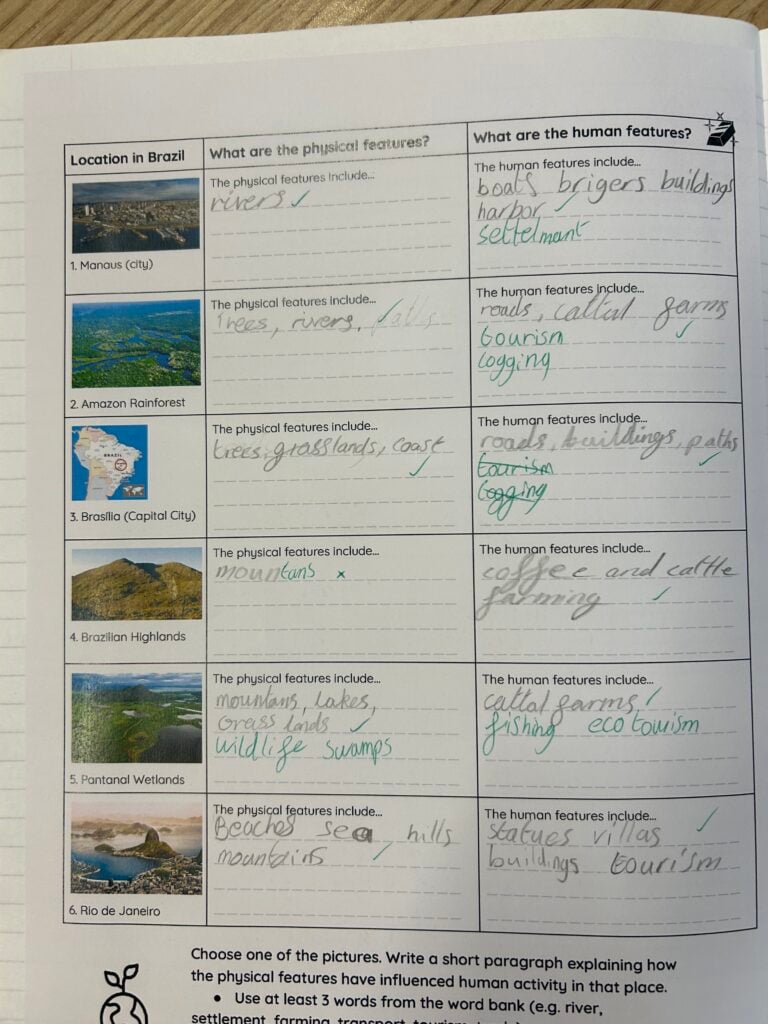 Location in Brazil
What are the physical features?
What are the human features?
The physical features include...
rivers
The human features include...
boats brigers buildings
harbor
settelmant
1. Manaus (city)
The physical features include...
Trees, rivers,
The human features include...
roads, cattal farms
tourism
logging
2. Amazon Rainforest
BRAZIL
The physical features include...
trees, grasslands, coast
The human features include...
roads, buildings, paths
tourism
logging
3. Brasília (Capital City)
The physical features include...
mountans
The human features include...
coffee and cattle
farming
4. Brazilian Highlands
The physical features include...
mountans, lakes,
Grass lands
wildlife swamps
The human features include...
cattal farms
fishing eco tourism
5. Pantanal Wetlands
The physical features include...
Beaches sea, hills
mountains
The human features include...
statues villas
buildings tourism
6. Rio de Janeiro
Choose one of the pictures. Write a short paragraph explaining how
the physical features have influenced human activity in that place.
Use at least 3 words from the word bank (e.g. river,
settlement, farming, transport, tourism